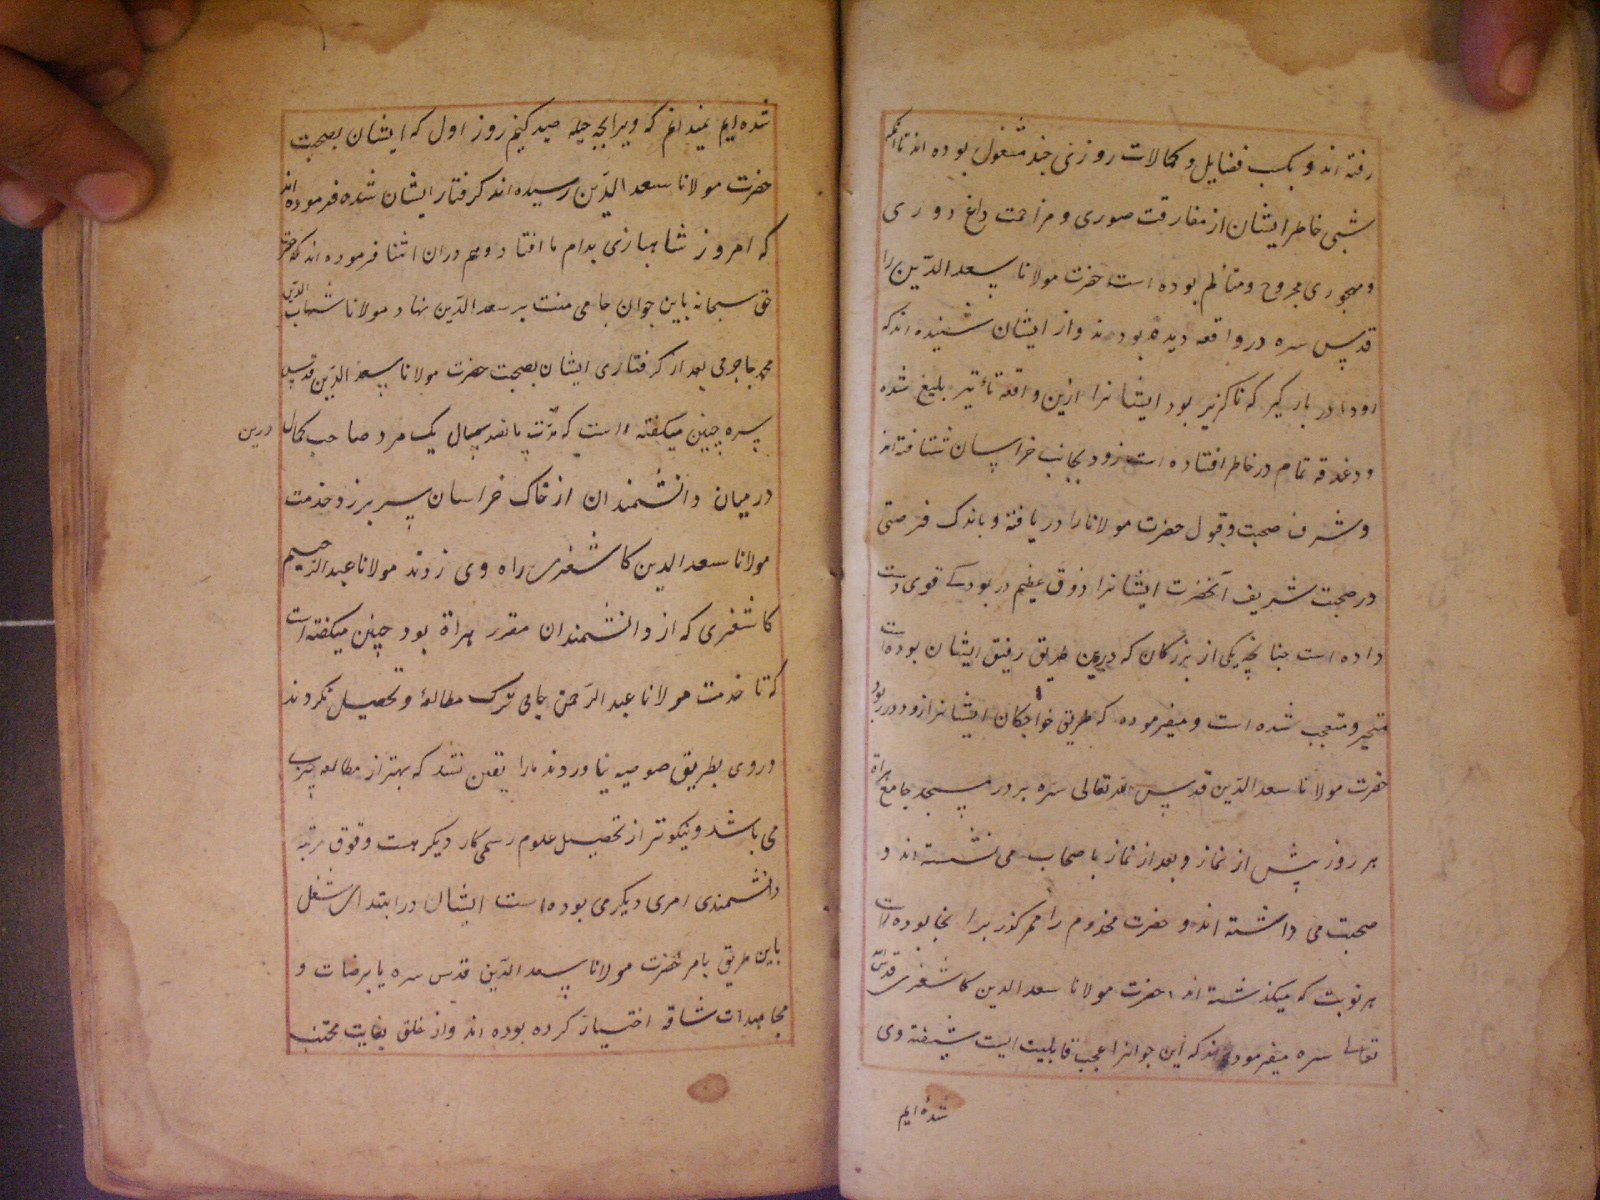 رفته اند و بکسب فضایل و کمالات روزی چند مشغول بوده اند تا انکه
شبی خاطر ایشان از مفارقت صوری و مزاحمت داغ دوری
و مهجوری مجروح و متألم بوده است حضرت مولانا سعد الدّین را
قدس سره در واقعه دیده بودند و از ایشان شنیده اند که
رو در بار گیر که ناکزیر بود ایشانرا ازین واقعه تأثیر بلیغ شده
و دغدغه تمام در خاطر افتاده است زود بجانب خراسان شتافته اند
و شرف صحبت و قبول حضرت مولانا را دریافته و باندک فرصتی
در صحبت شریف آنحضرت ایشانرا ذوق عظیم در بودکی قوی دست
داده است چنانچه یکی از بزرکان که درین طریق رفیق ایشان بوده است
متحیر و متعجب شده است و میفرموده که طریق خواجکان ایشانرا زود در ربود
حضرت مولانا سعد الدّین قدس الله تعالی سره بر در مسجد جامع هراة
هر روز پیش از نماز و بعد از نماز با صحاب می نشسته اند و
صحبت می داشته اند و حضرت مخدوم را ممر کذر بر انجا بوده است
هر نوبت که میکذشته اند حضرت مولانا سعد الدین کاشغری قدس الله
تعالی سره میفرموده اند که این جوانرا عجب قابلیت است شیفته وی
شده ایم
شده ایم نمیدانم که ویرا بچه حیله صید کنیم روز اول که ایشان بصحبت
حضرت مولانا سعد الدّین رسیده اند کرفتار ایشان شده فرموده اند
که امروز شاهبازی بدام ما افتاد و هم دران اثنا فرموده اند که حضرت
حق سبحانه باین جوان جامی منت بر سعد الدّین نهاد و مولانا شهاب الدّین
محمد جاجرمی بعد از کرفتاری ایشان بصحبت حضرت مولانا سعد الدّین قدس
سره چنین میکفته است که درین مدّت پانصد سال یک مرد صاحب کمال
در میان دانشمندان از خاک خراسان سر بر زد و خدمت
مولانا سعد الدین کاشغری راه وی زدند مولانا عبد الرّحیم
کاشغری که از دانشمندان مقرر هراة بود چنین میکفته است
که تا خدمت مولانا عبد الرّحمن جامی ترک مطالعهٔ و تحصیل نکردند
و روی بطریق صوفیه نیاوردند مارا یقین نشد که بهتر از مطالعه چیزی
می باشد و نیکوتر از تحصیل علوم رسمی کار دیکر هست و فوق مرتبه
دانشمندی امری دیکر می بوده است ایشان در ابتدای شغل
باین طریق بامر حضرت مولانا سعد الدّین قدس سره یا برضات و
مجاهدات شاقه اختیار کرده بوده اند و از خلق بغایت مجتنب